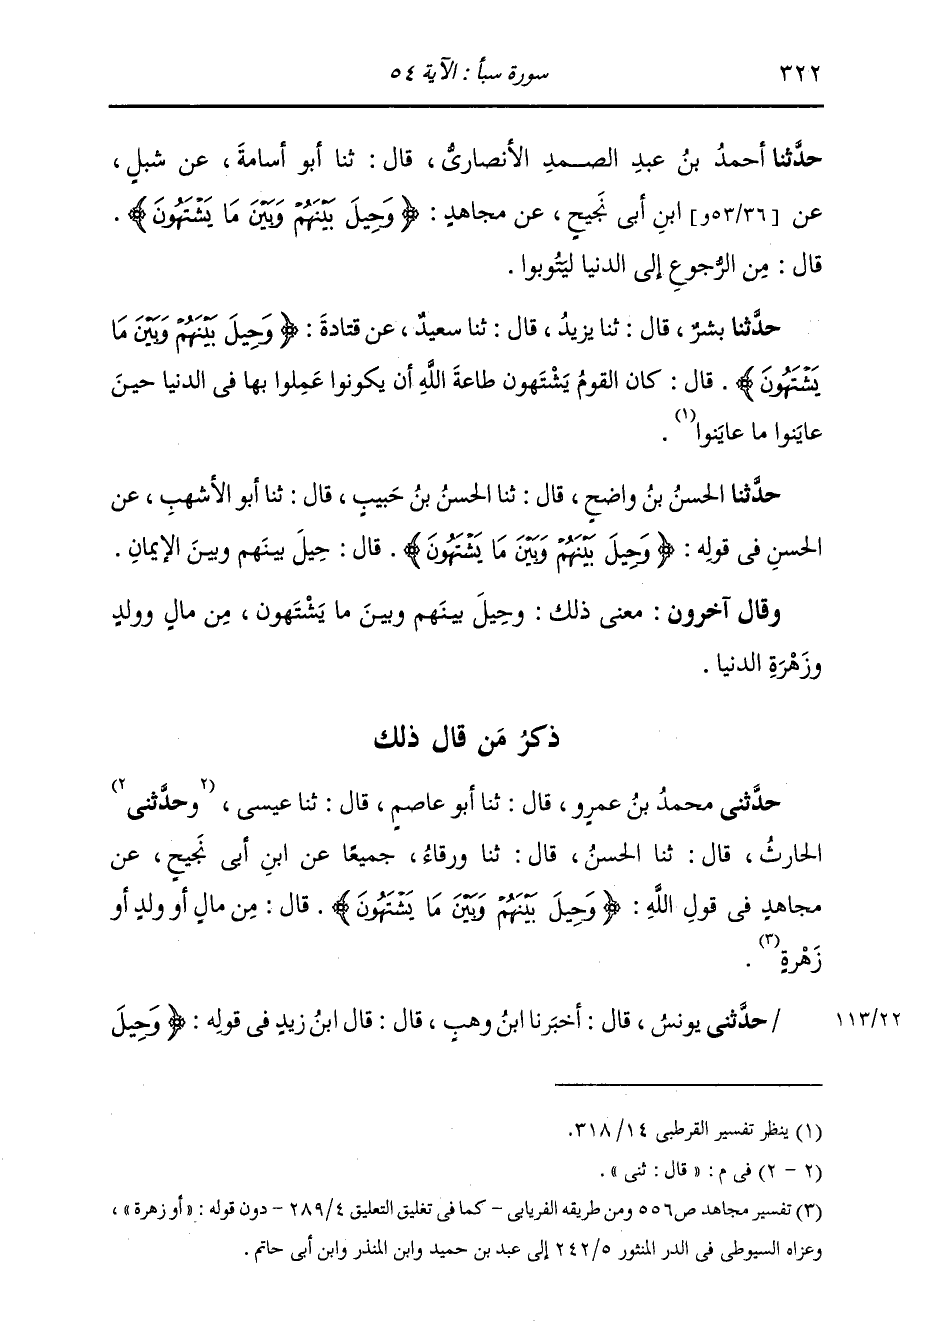 ٣٢٢ سورة سبأ : الآية ٥٤
حدَّثنا أحمدُ بنُ عبدِ الصـمدِ الأنصارىُّ ، قال : ثنا أبو أسامةَ ، عن شبلٍ ،
عن [٥٣/٣٦و] ابنِ أبى نَجيحٍ ، عن مجاهدٍ : ﴿ وَحِيلَ بَيْنَهُمْ وَبَيْنَ مَا يَشْتَهُونَ ﴾ .
قال : مِن الرُّجوعِ إلى الدنيا ليَتُوبوا .
حدَّثنا بشرٌ ، قال : ثنا يزيدُ ، قال : ثنا سعيدٌ ، عن قتادةَ : ﴿ وَحِيلَ بَيْنَهُمْ وَبَيْنَ مَا
يَشْتَهُونَ ﴾ . قال : كان القومُ يَشْتَهون طاعةَ اللَّهِ أن يكونوا عَمِلوا بها فى الدنيا حينَ
عايَنوا ما عايَنوا(١) .
حدَّثنا الحسنُ بنُ واضحٍ ، قال : ثنا الحسنُ بنُ حَبيبٍ ، قال : ثنا أبو الأشهبِ ، عن
الحسنِ فى قولِه : ﴿ وَحِيلَ بَيْنَهُمْ وَبَيْنَ مَا يَشْتَهُونَ ﴾ . قال : حِيلَ بينَهم وبينَ الإيمانِ .
وقال آخرون : معنى ذلك : وحِيلَ بينَهم وبينَ ما يَشْتَهون ، مِن مالٍ وولدٍ
وزَهْرَةِ الدنيا .
ذكرُ مَن قال ذلك
حدَّثنى محمدُ بنُ عمرٍو ، قال : ثنا أبو عاصمٍ ، قال : ثنا عيسى ، (٢وحدَّثنى٢)
الحارثُ ، قال : ثنا الحسنُ ، قال : ثنا ورقاءُ ، جميعًا عن ابنِ أبى نَجيحٍ ، عن
مجاهدٍ فى قولِ اللَّهِ : ﴿ وَحِيلَ بَيْنَهُمْ وَبَيْنَ مَا يَشْتَهُونَ ﴾ . قال : مِن مالٍ أو ولدٍ أو
زَهْرةٍ(٣) .
١١٣/٢٢ / حدَّثنى يونسُ ، قال : أخبَرنا ابنُ وهبٍ ، قال : قال ابنُ زيدٍ فى قولِه : ﴿ وَحِيلَ
(١) ينظر تفسير القرطبى ٣١٨/١٤.
(٢ - ٢) فى م : « قال : ثنى » .
(٣) تفسير مجاهد ص٥٥٦ ومن طريقه الفريابى - كما فى تغليق التعليق ٢٨٩/٤ - دون قوله : « أو زهرة » ،
وعزاه السيوطى فى الدر المنثور ٢٤٢/٥ إلى عبد بن حميد وابن المنذر وابن أبى حاتم .